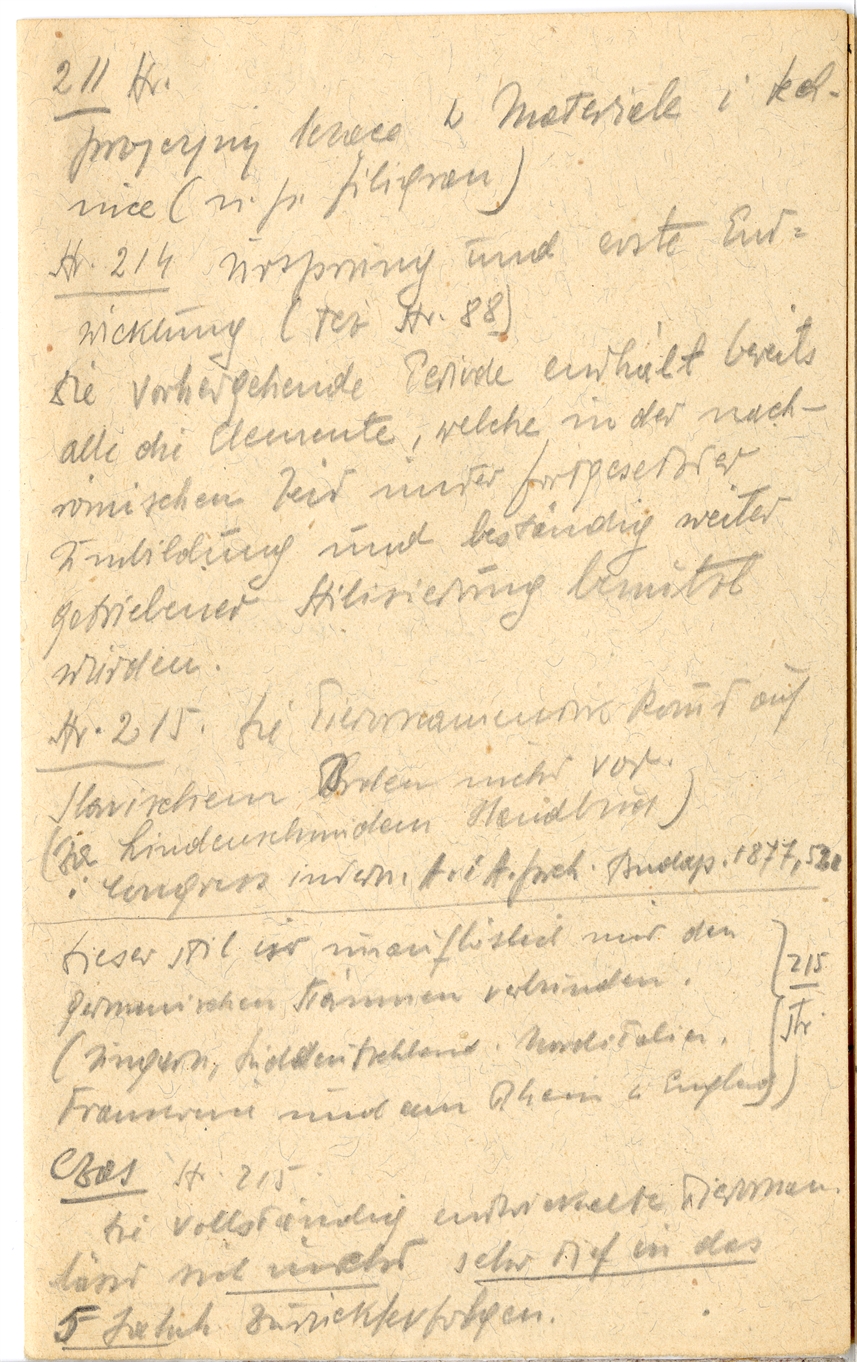 211 str.
precyzyjny                    w Materiale i tech-
nice (n. p. filigran)
Str. 214 Ursprung und erste Ent=
wicklung (też str. 88)
Die vorhergehende Periode enthält bereits
alle die Elemente, welche in der nach-
römischen Zeit unter fortgesetzter
Umbildung und beständig weiter
getriebener Stilisierung benützt
wurden.
Str. 215. Die Tierornamentik kommt auf
Slavischem Boden nicht vor.
(Die Lindenschmidt Handbuch)
i Congress intern. A. i A. preh. Budap. 1877,
Dieser Stil ist unauflöslich mit den
germanischen Stämmen verbunden.
(Ungarn, Süddeutschland. Norditalien.
Frankreich und am Rhein u England)
215
str.
Czas St. 215
Die vollständig entwickelte Tierornam.
lässt sich nicht sehr tief in das
5 Jahrh zurückverfolgen.